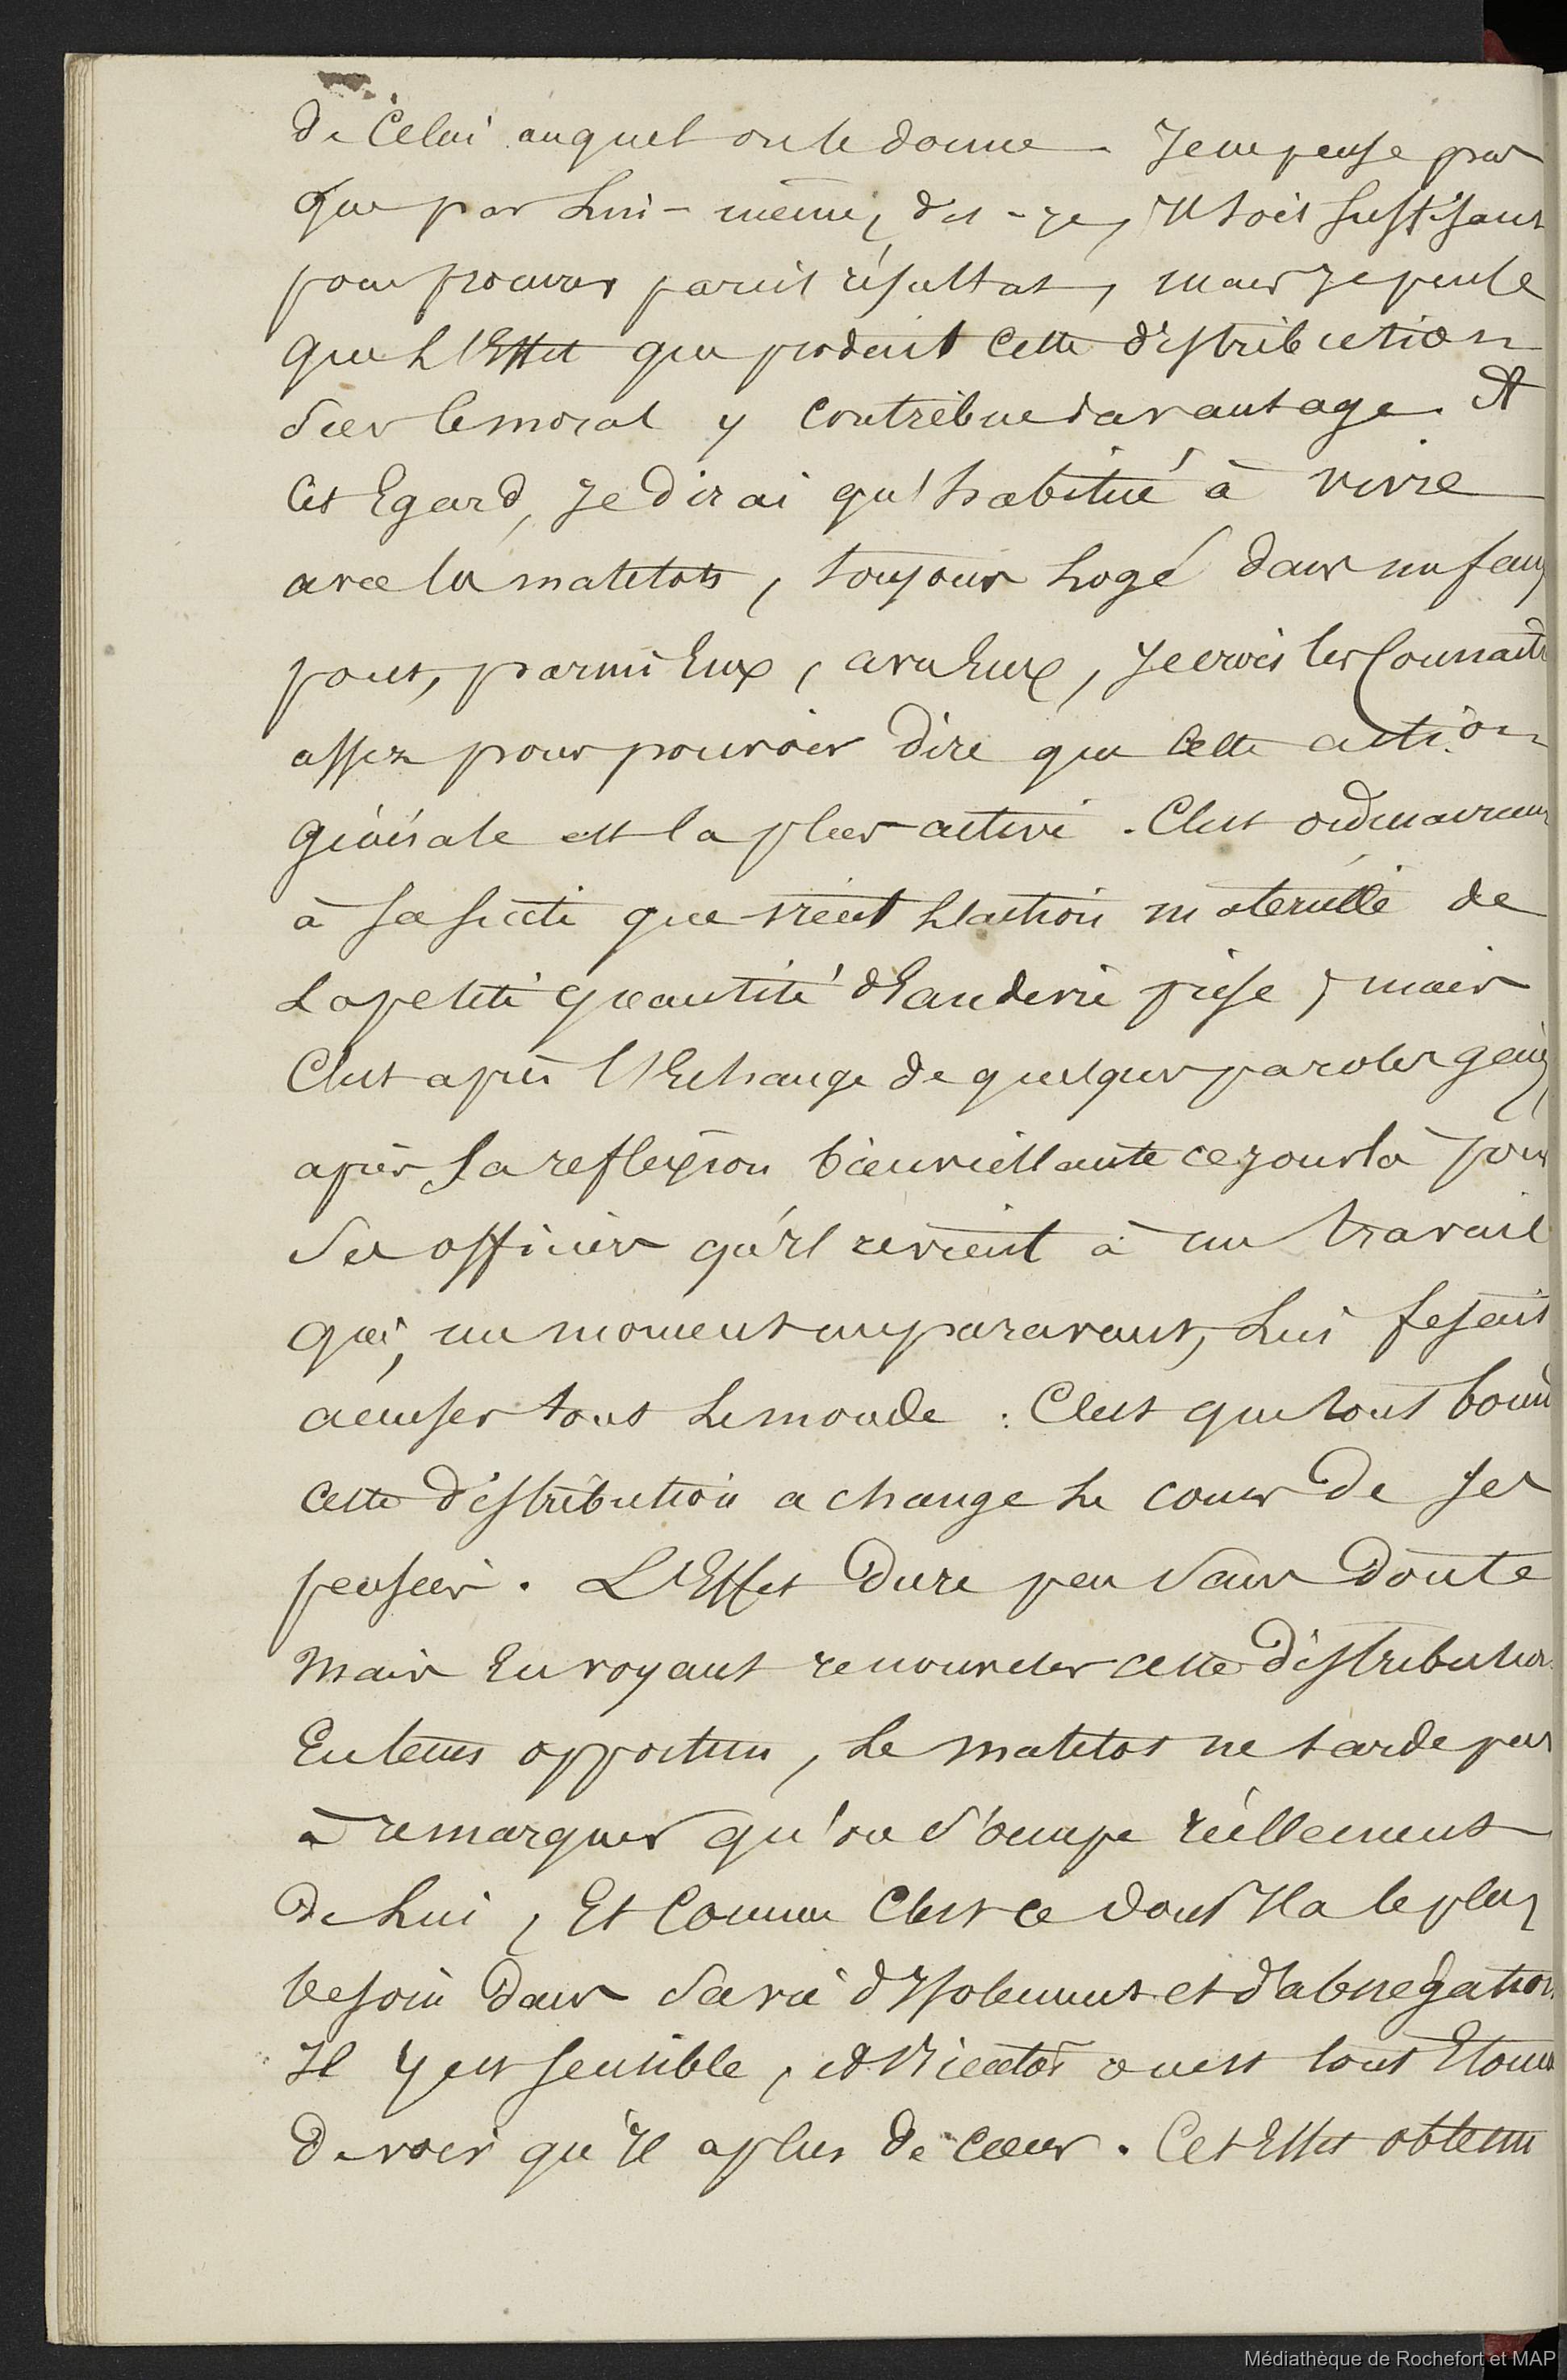 de Celui auquel on le donne. Je ne pense pas
que par Lui-même, dis-je, Il soit suffisant
pour procurer pareil résultat, mais Je pense
que L'Effet que produit Cette distribution
sur le moral y contribue davantage. A
Cet Egard, Je dirai qu'habitué à vivre
avec les matelots, toujours Logé dans un faux
pont, parmi Eux, avec Eux, Je crois les Connaitre
assez pour pouvoir dire que Cette action
générale est la plus active. C'est ordinairement
à sa suite que vient L'action materielle de
La petite quantité d'Eau de vie prise, mais
C'est après l'Echange de quelques paroles gaies
après La reflexion bienveillante ce jour là pour
Ses officiers qu'il revient à un travail
qui, un moment auparavant, Lui fesait
accuser tout Le monde : C'est que tout bonn
cette distribution a change Le cours de ses
pensées. L'Effet dure peu sans doute
mais En voyant renouveler cette distribution
En tems opportun, Le matelot ne tarde pas
à remarquer qu'on s'occupe réellement
de Lui, Et Comme C'est ce dont Il a le plus
besoin dans sa vie d'Isolement et d'abnegation
Il y est sensible, et bientôt on est tout Etonné
de voir qu'Il a plus de cœur. Cet Effet obtenu
Médiathèque de Rochefort et MAP